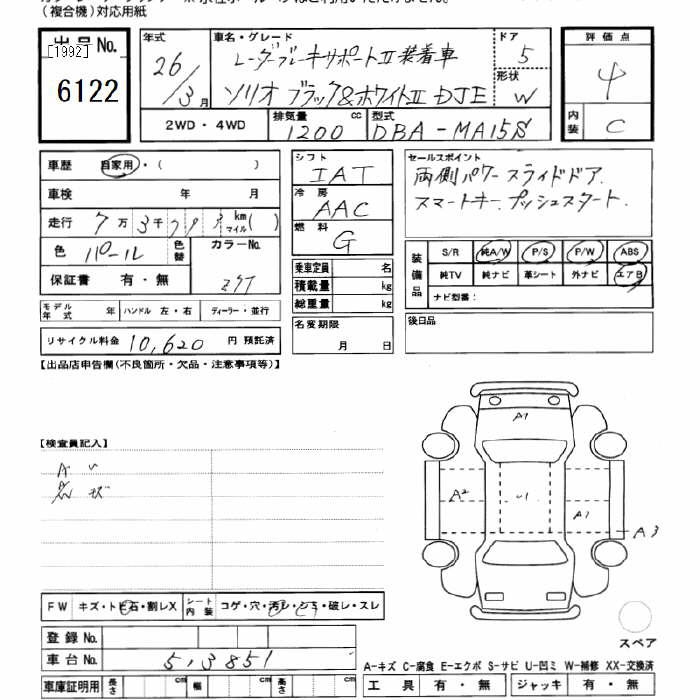 (複合機)対応用紙
出品No.
[1992]
6122
年式 26/3月
車名・グレード レーダーブレーキサポートⅡ装着車
ソリオ ブラック&ホワイトⅡ DJE
ドア 5
形状 W
評価点 4
内装 C
2WD・4WD
排気量 1200 cc
型式 DBA-MA15S
車歴 自家用・( )
車検 年 月
走行 7万3千 km マイル( )
色 パール 色替
カラーNo. ZGT
保証書 有・無
シフト IAT
冷房 AAC
燃料 G
乗車定員 名
積載量 kg
総重量 kg
セールスポイント
両側パワースライドドア.
スマートキー.プッシュスタート.
装備品
S/R 純A/W P/S P/W ABS
純TV 純ナビ 革シート 外ナビ エアB
ナビ型番:
モデル年式 年 ハンドル 左・右 ディーラー・並行
名変期限 月 日
後日品
リサイクル料金 10,620 円 預託済
【出品店申告欄(不良箇所・欠品・注意事項等)】
【検査員記入】
A1
A2
A1
A3
FW キズ・トビ石・割レX
シート内装 コゲ・穴・汚レ・シミ・破レ・スレ
登録No.
車台No. 513851
スペア
A-キズ C-腐食 E-エクボ S-サビ U-凹ミ W-補修 XX-交換済
車庫証明用 長さ cm 幅 cm 高さ cm
工具 有・無 ジャッキ 有・無